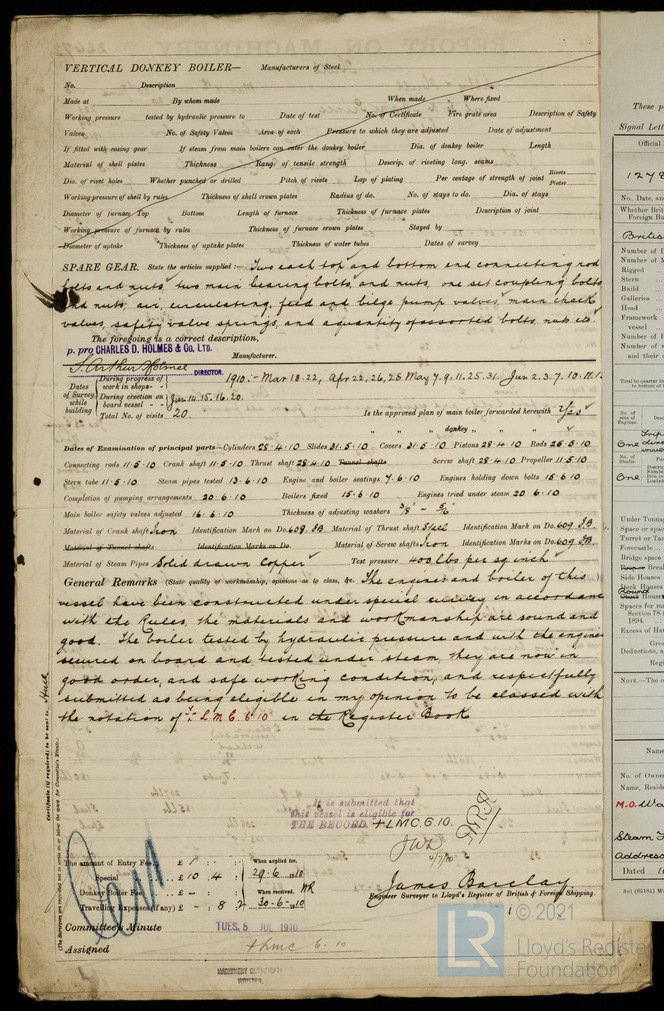 VERTICAL DONKEY BOILER— Manufacturers of Steel
No. Description
Made at By whom made When made Where fixed
Working pressure tested by hydraulic pressure to Date of test No. of Certificate Fire grate area Description of Safety
Valves No. of Safety Valves Area of each Pressure to which they are adjusted Date of adjustment
If fitted with easing gear If steam from main boilers can enter the donkey boiler Dia. of donkey boiler Length
Material of shell plates Thickness Range of tensile strength Descrip. of riveting long. seams
Dia. of rivet holes Whether punched or drilled Pitch of rivets Lap of plating Per centage of strength of joint Rivets Plates
Working pressure of shell by rules Thickness of shell crown plates Radius of do. No. of stays to do. Dia. of stays
Diameter of furnace Top Bottom Length of furnace Thickness of furnace plates Description of joint
Working pressure of furnace by rules Thickness of furnace crown plates Stayed by
Diameter of uptake Thickness of uptake plates Thickness of water tubes Dates of survey
SPARE GEAR. State the articles supplied:— Two each top and bottom end connecting rod
bolts and nuts, two main bearing bolts, and nuts, one set coupling bolts
and nuts, air, circulating, feed and bilge pump valves, main check
valves, safety valve springs, and a quantity of assorted bolts, nuts etc
The foregoing is a correct description,
p. pro CHARLES D. HOLMES & Co. LTD. Manufacturer.
Arthur Holmes DIRECTOR.
Dates of Survey while building
During progress of work in shops- - 1910:- Mar 18.22, Apr 22, 26, 28 May 7.9.11.25.31. Jun 2.3.7.10.11.
During erection on board vessel - - Jun 14.15.16.20.
Total No. of visits 20 Is the approved plan of main boiler forwarded herewith Yes
" " " donkey " " "
Dates of Examination of principal parts—Cylinders 28.4.10 Slides 31.5.10 Covers 31.5.10 Pistons 28.4.10 Rods 25.5.10
Connecting rods 11.5.10 Crank shaft 11.5.10 Thrust shaft 28.4.10 Tunnel shafts Screw shaft 28.4.10 Propeller 11.5.10
Stern tube 11.5.10 Steam pipes tested 13.6.10 Engine and boiler seatings 7.6.10 Engines holding down bolts 15.6.10
Completion of pumping arrangements 20.6.10 Boilers fixed 15.6.10 Engines tried under steam 20.6.10
Main boiler safety valves adjusted 16.6.10 Thickness of adjusting washers
Material of Crank shaft Iron Identification Mark on Do. 609 JB Material of Thrust shaft Steel Identification Mark on Do. 609 JB
Material of Tunnel shafts Identification Marks on Do. Material of Screw shafts Iron Identification Marks on Do. 609 JB
Material of Steam Pipes Solid drawn Copper Test pressure 400 lbs per sq inch
General Remarks (State quality of workmanship, opinions as to class, &c. The engines and boiler of this
vessel have been constructed under special survey in accordance
with the Rules, the materials and workmanship are sound and
good. The boiler tested by hydraulic pressure and with the engines
secured on board and tested under steam, they are now in
good order, and safe working condition, and respectfully
submitted as being eligible in my opinion to be classed with
the notation of + L.M.C. 6.10 in the Register Book
It is submitted that
this vessel is eligible for
THE RECORD. + LMC. 6.10.
JWD
4/7/10
The amount of Entry Fee.. £ 1 : :
Special £ 10 : 4 :
Donkey Boiler Fee £ — : :
Travelling Expenses (if any) £ — : 8 : 2
When applied for, 29.6.1910
When received, 30.6.1910
James Barclay
Engineer Surveyor to Lloyd's Register of British & Foreign Shipping.
Committee's Minute TUES. 5 JUL 1910
Assigned + Lmc 6.10
MACHINERY CERTIFICATE
WRITTEN.
Certificate (if required) to be sent to Hull
(The Surveyors are requested not to write on or below the space for Committee's Minute.)
These p
Signal Lett
Official
1278
No., Date, an
Whether Brit
Foreign Bo
British
Number of D
Number of M
Rigged
Stern
Build
Galleries
Head
Framework
vessel
Number of B
Number of
and their
Total to quarter th
to bottom of
No. of sets of Engines.
One
No. of Shafts.
One
Under Tonnag
Space or spac
Turret or Tru
Forecastle
Bridge space
Poop or Brea
Side Houses
Deck Houses
Round
Spaces for ma
Section 78
1894.
Excess of Hat
Gross
Deductions, a
Regi
NOTE.—The
Name
No. of Owne
Name, Reside
M.O. Wa
Steam
Address
Dated 1
© 2021
LR
Lloyd's Register
Foundation